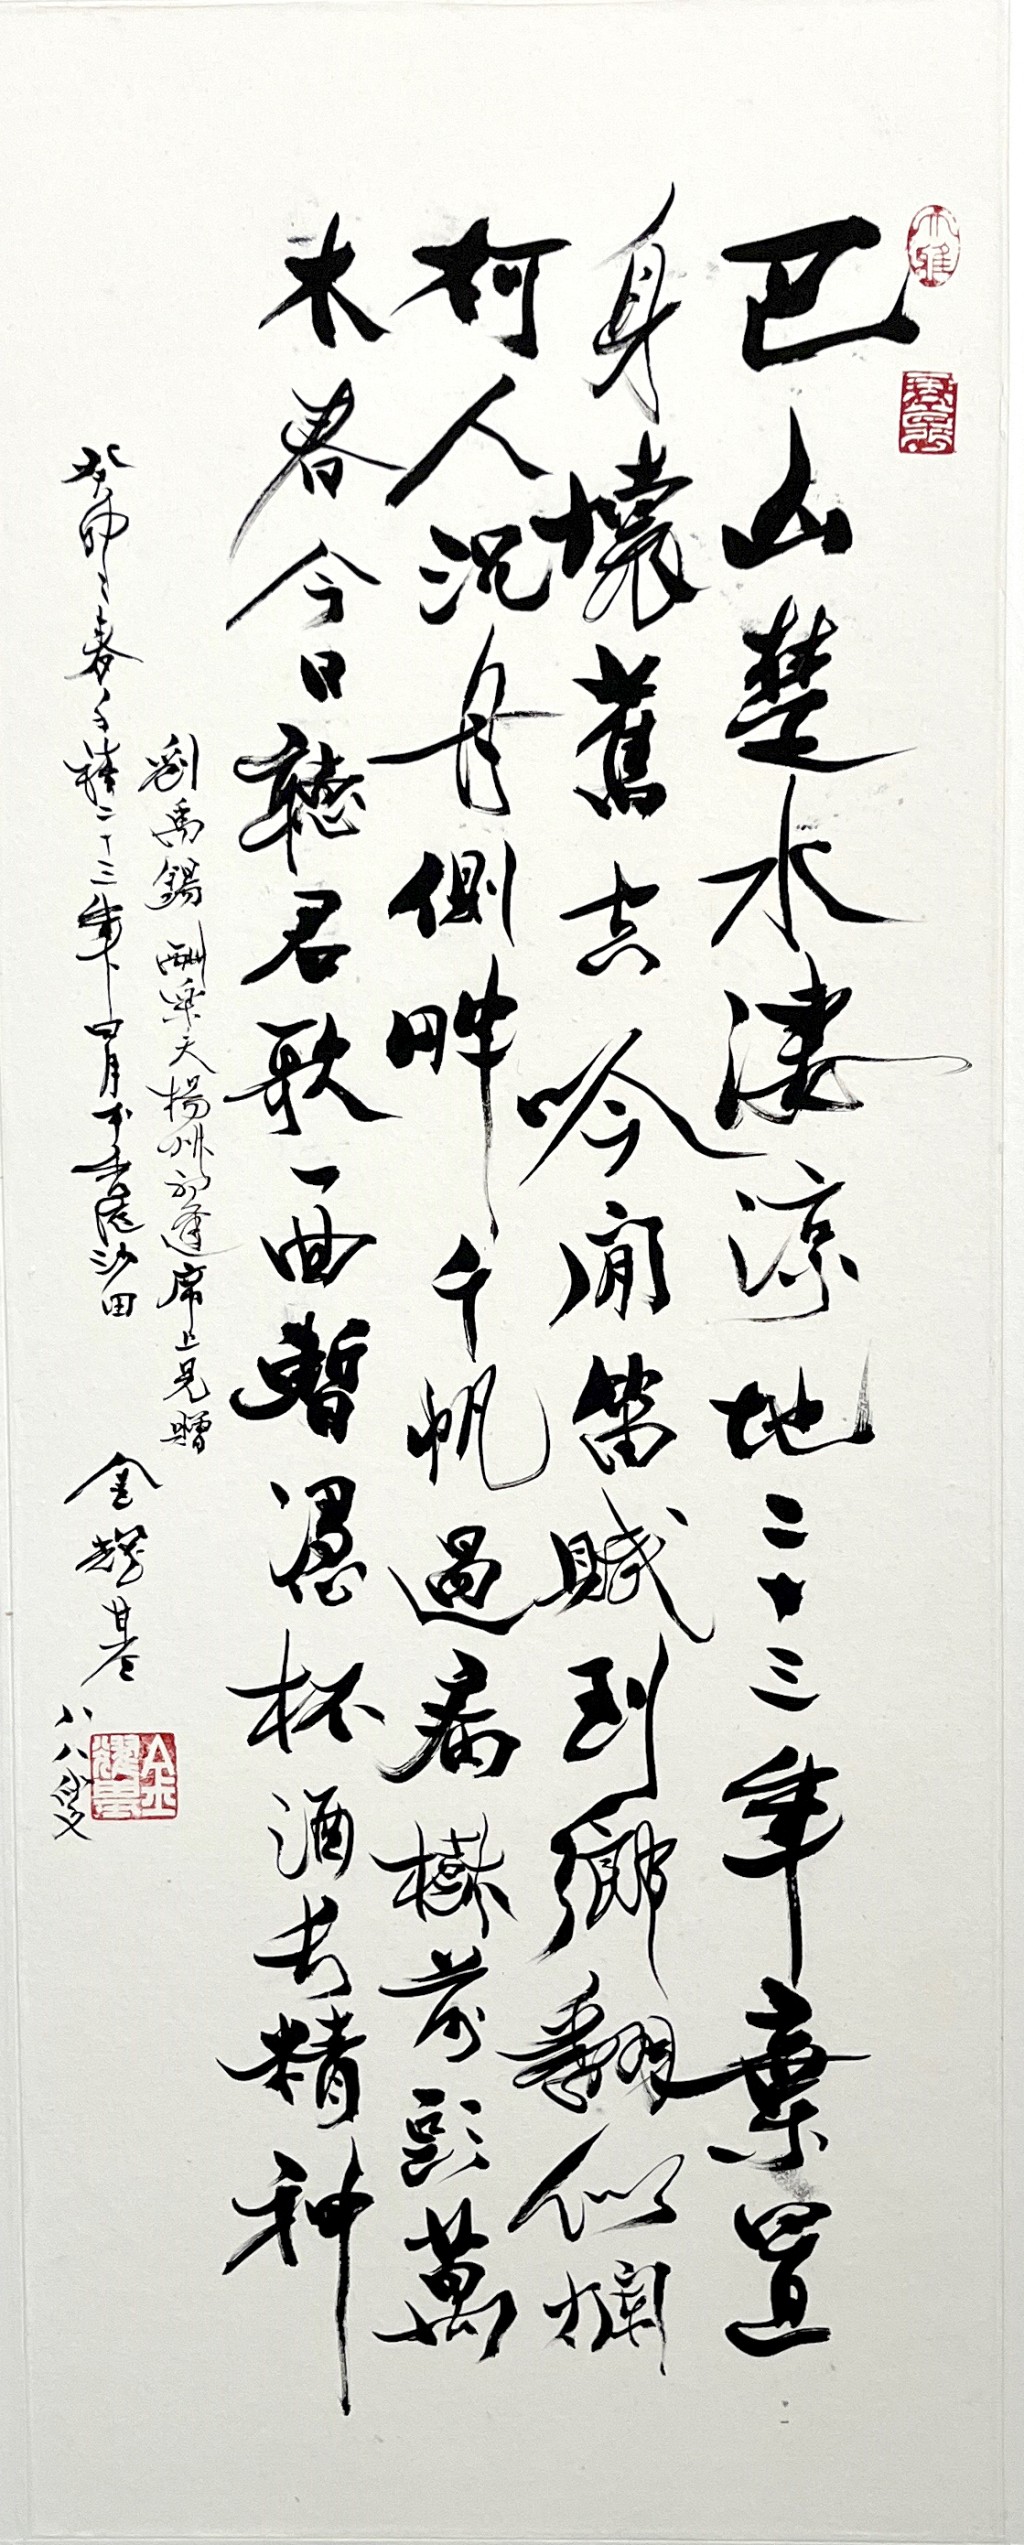 巴山楚水淒涼地二十三年棄置
身懷舊空吟聞笛賦到鄉翻似爛
柯人沉舟側畔千帆過病樹前頭萬
木春今日聽君歌一曲暫憑杯酒長精神
劉禹錫酬樂天揚州初逢席上見贈
癸卯之春二十三年四月於香港沙田
金耀基八八叟
大雅
金耀基